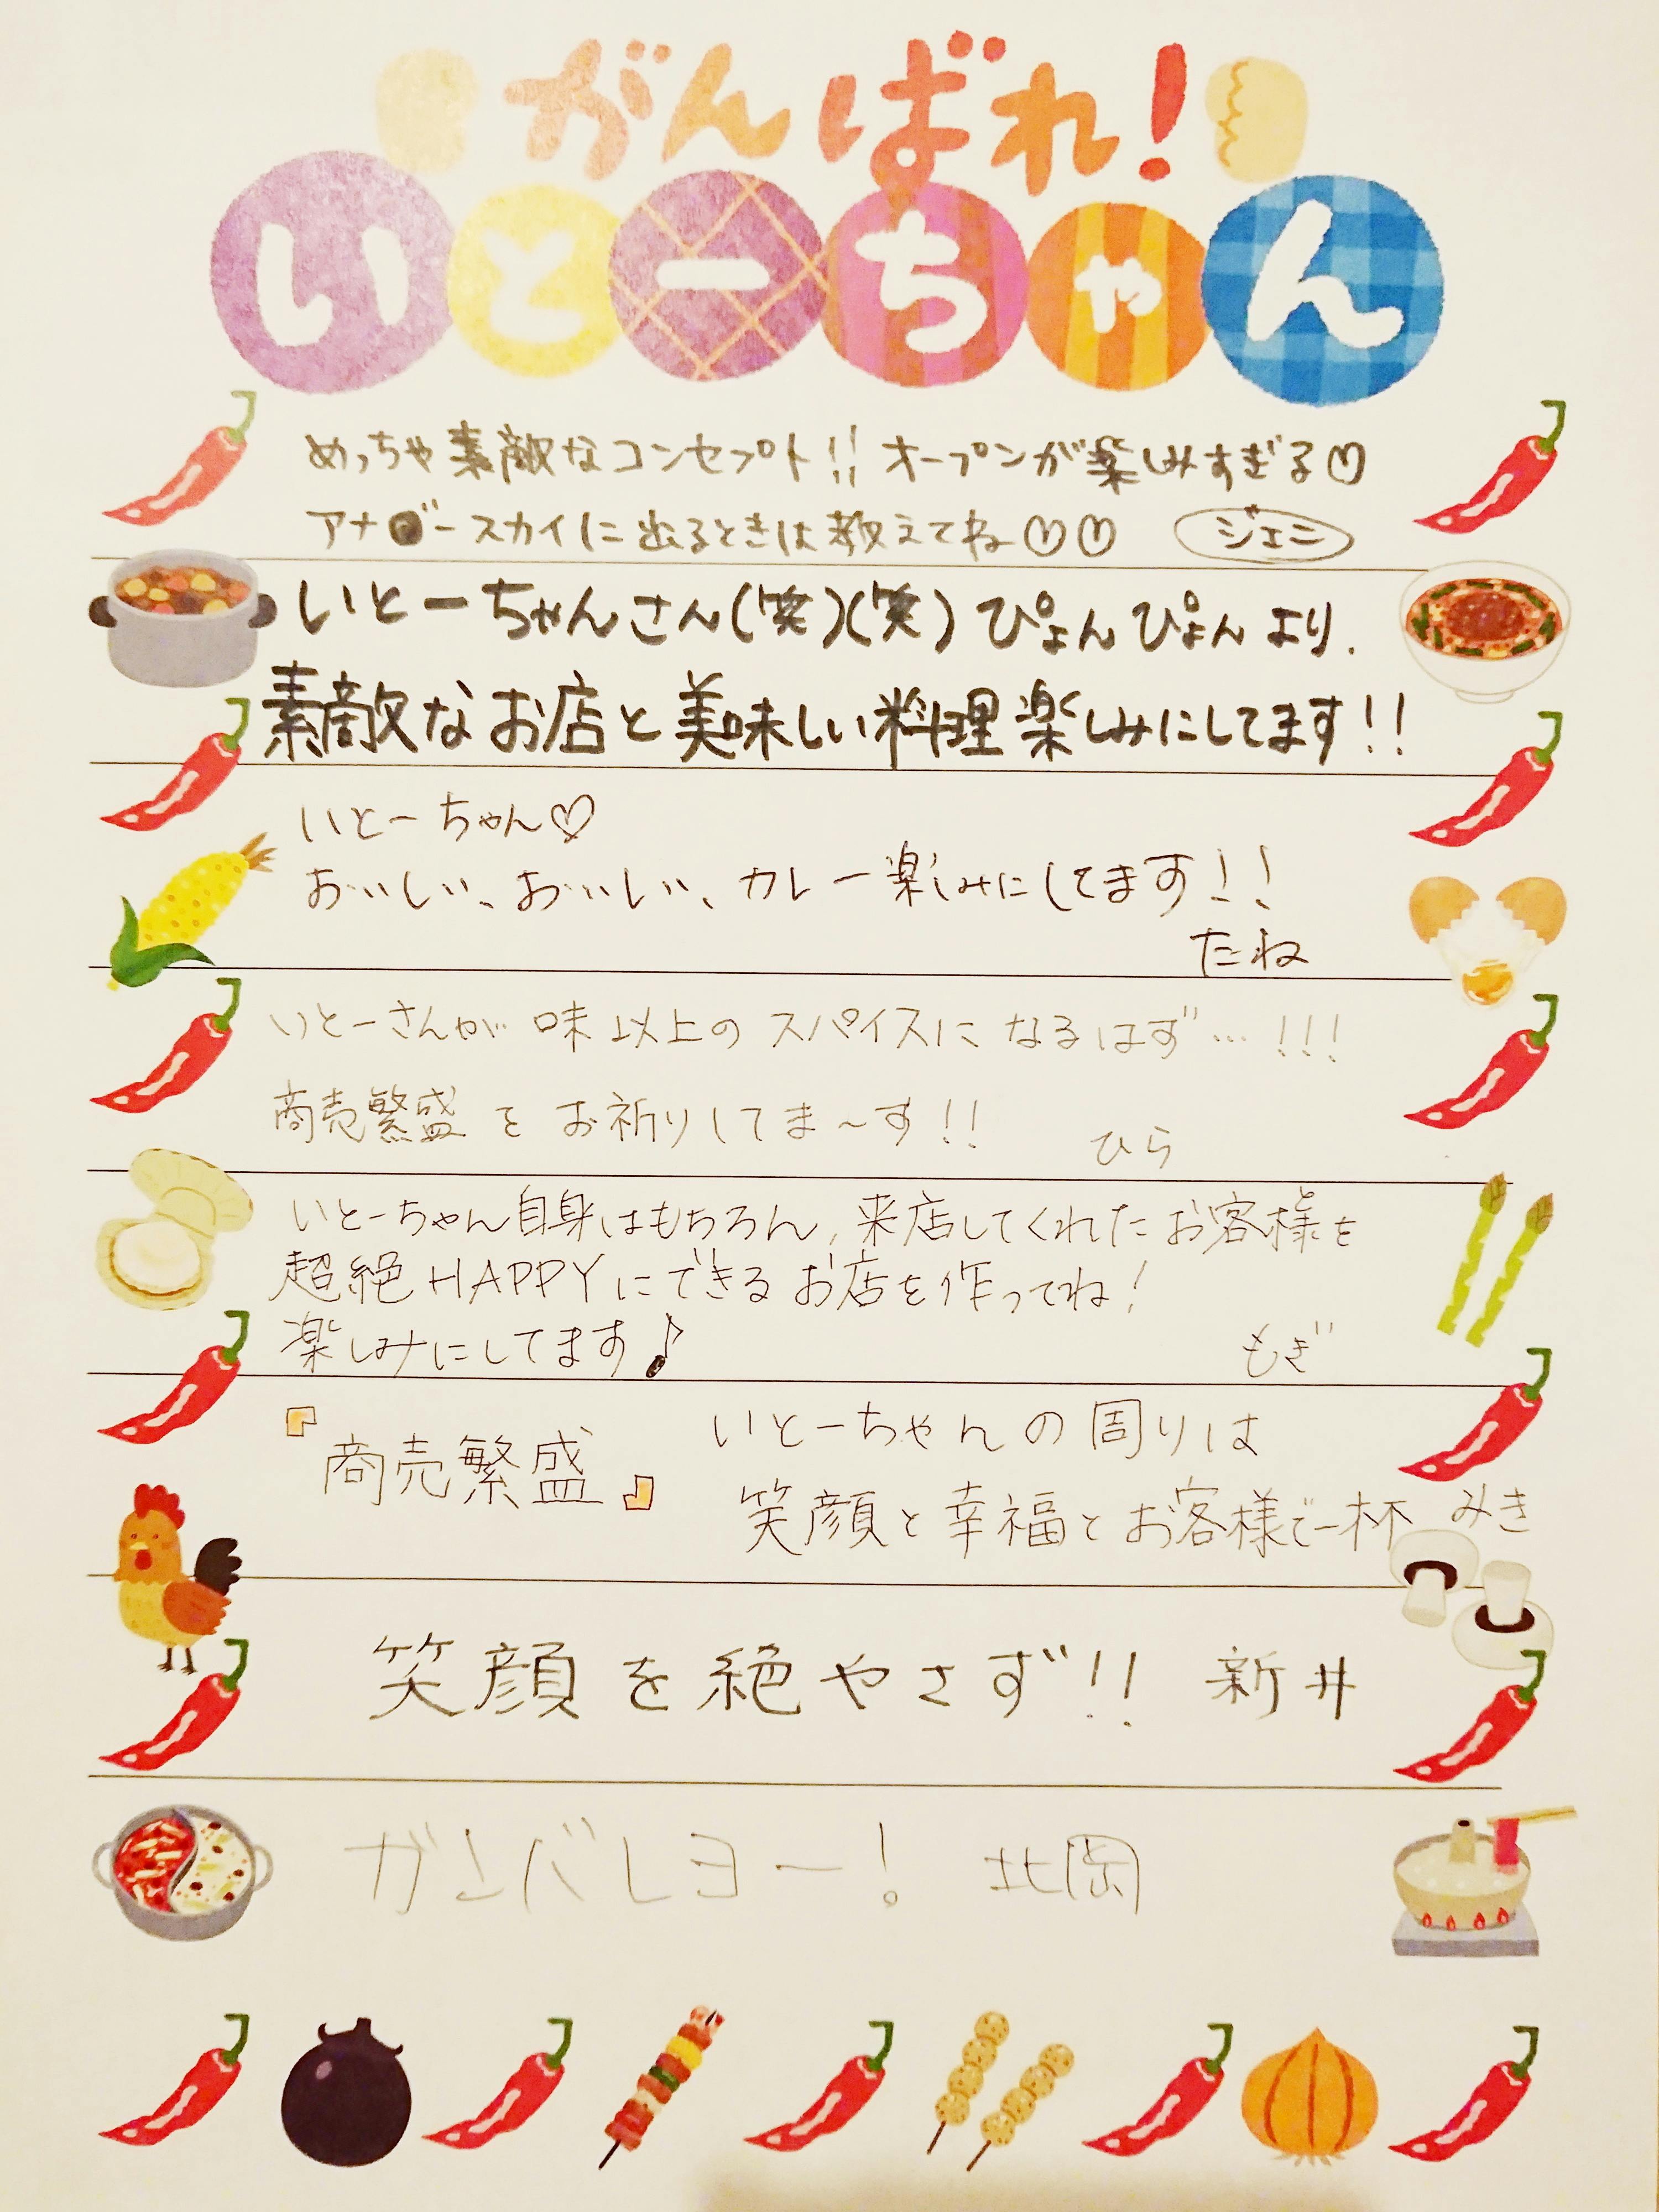 がんばれ!
いとーちゃん
めっちゃ素敵なコンセプト!! オープンが楽しみすぎる♡
アナザースカイに出るときは教えてね♡♡ ジェニ
いとーちゃんさん(笑)(笑) ぴょんぴょんより.
素敵なお店と美味しい料理楽しみにしてます!!
いとーちゃん♡
おいしい、おいしい、カレー楽しみにしてます!!
たね
いとーさんが味以上のスパイスになるはず…!!!
商売繁盛をお祈りしてま〜す!! ひら
いとーちゃん自身はもちろん,来店してくれたお客様を
超絶HAPPYにできるお店を作ってね!
楽しみにしてます♪ もぎ
『商売繁盛』 いとーちゃんの周りは
笑顔と幸福とお客様で一杯 みき
笑顔を絶やさず!! 新井
ガンバレヨー! 北岡